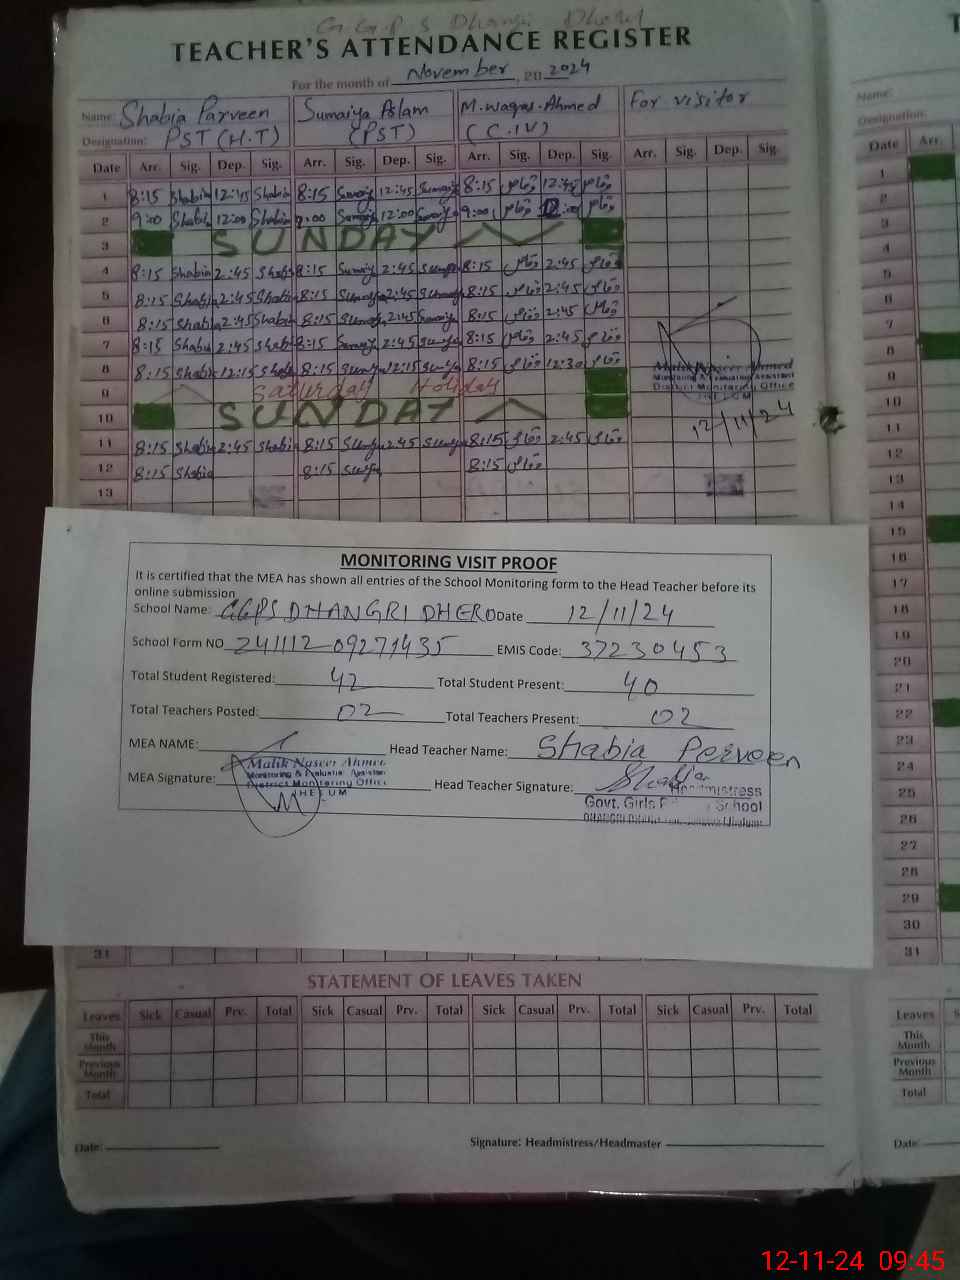 G G P S Dhangri Dhero
TEACHER'S ATTENDANCE REGISTER
For the month of November, 20 2024
Name: Shabia Parveen Sumaiya Aslam M. Waqas Ahmed For visitor
Designation: PST (H.T) (PST) (C.IV)
Date Arr. Sig. Dep. Sig. Arr. Sig. Dep. Sig. Arr. Sig. Dep. Sig. Arr. Sig. Dep. Sig.
1 8:15 Shabia 12:45 Shabia 8:15 Sumaiya 12:45 Sumaiya 8:15 وقاص 12:45 وقاص
2 9:00 Shabia 12:00 Shabia 9:00 Sumaiya 12:00 Sumaiya 9:00 وقاص 12:00 وقاص
3 SUNDAY
4 8:15 Shabia 2:45 Shabia 8:15 Sumaiya 2:45 Sumaiya 8:15 وقاص 2:45 وقاص
5 8:15 Shabia 2:45 Shabia 8:15 Sumaiya 2:45 Sumaiya 8:15 وقاص 2:45 وقاص
6 8:15 Shabia 2:45 Shabia 8:15 Sumaiya 2:45 Sumaiya 8:15 وقاص 2:45 وقاص
7 8:15 Shabia 2:45 Shabia 8:15 Sumaiya 2:45 Sumaiya 8:15 وقاص 2:45 وقاص
8 8:15 Shabia 12:15 Shabia 8:15 Sumaiya 12:15 Sumaiya 8:15 وقاص 12:30 وقاص
Malik Naseer Ahmed
Monitoring & Evaluation Assistant
District Monitoring Office
JHELUM
12/11/24
9 Saturday Holiday
10 SUNDAY
11 8:15 Shabia 2:45 Shabia 8:15 Sumaiya 2:45 Sumaiya 8:15 وقاص 2:45 وقاص
12 8:15 Shabia 8:15 Sumaiya 8:15 وقاص
13
MONITORING VISIT PROOF
It is certified that the MEA has shown all entries of the School Monitoring form to the Head Teacher before its
online submission
School Name: GGPS DHANGRI DHERO Date 12/11/24
School Form NO 241112-09271435 EMIS Code: 37230453
Total Student Registered: 42 Total Student Present: 40
Total Teachers Posted: 02 Total Teachers Present: 02
MEA NAME: Head Teacher Name: Shabia Perveen
Malik Naseer Ahmed
Monitoring & Evaluation Assistant
District Monitoring Office
JHELUM
MEA Signature: Head Teacher Signature: Shabia
Headmistress
Govt. Girls School
31
STATEMENT OF LEAVES TAKEN
Leaves Sick Casual Prv. Total Sick Casual Prv. Total Sick Casual Prv. Total Sick Casual Prv. Total
This Month
Previous Month
Total
Date: Signature: Headmistress/Headmaster
T
Name:
Designation:
Date Arr.
1
2
3
4
5
6
7
8
9
10
11
12
13
14
15
16
17
18
19
20
21
22
23
24
25
26
27
28
29
30
31
Leaves S
This Month
Previous Month
Total
Date:
12-11-24 09:45